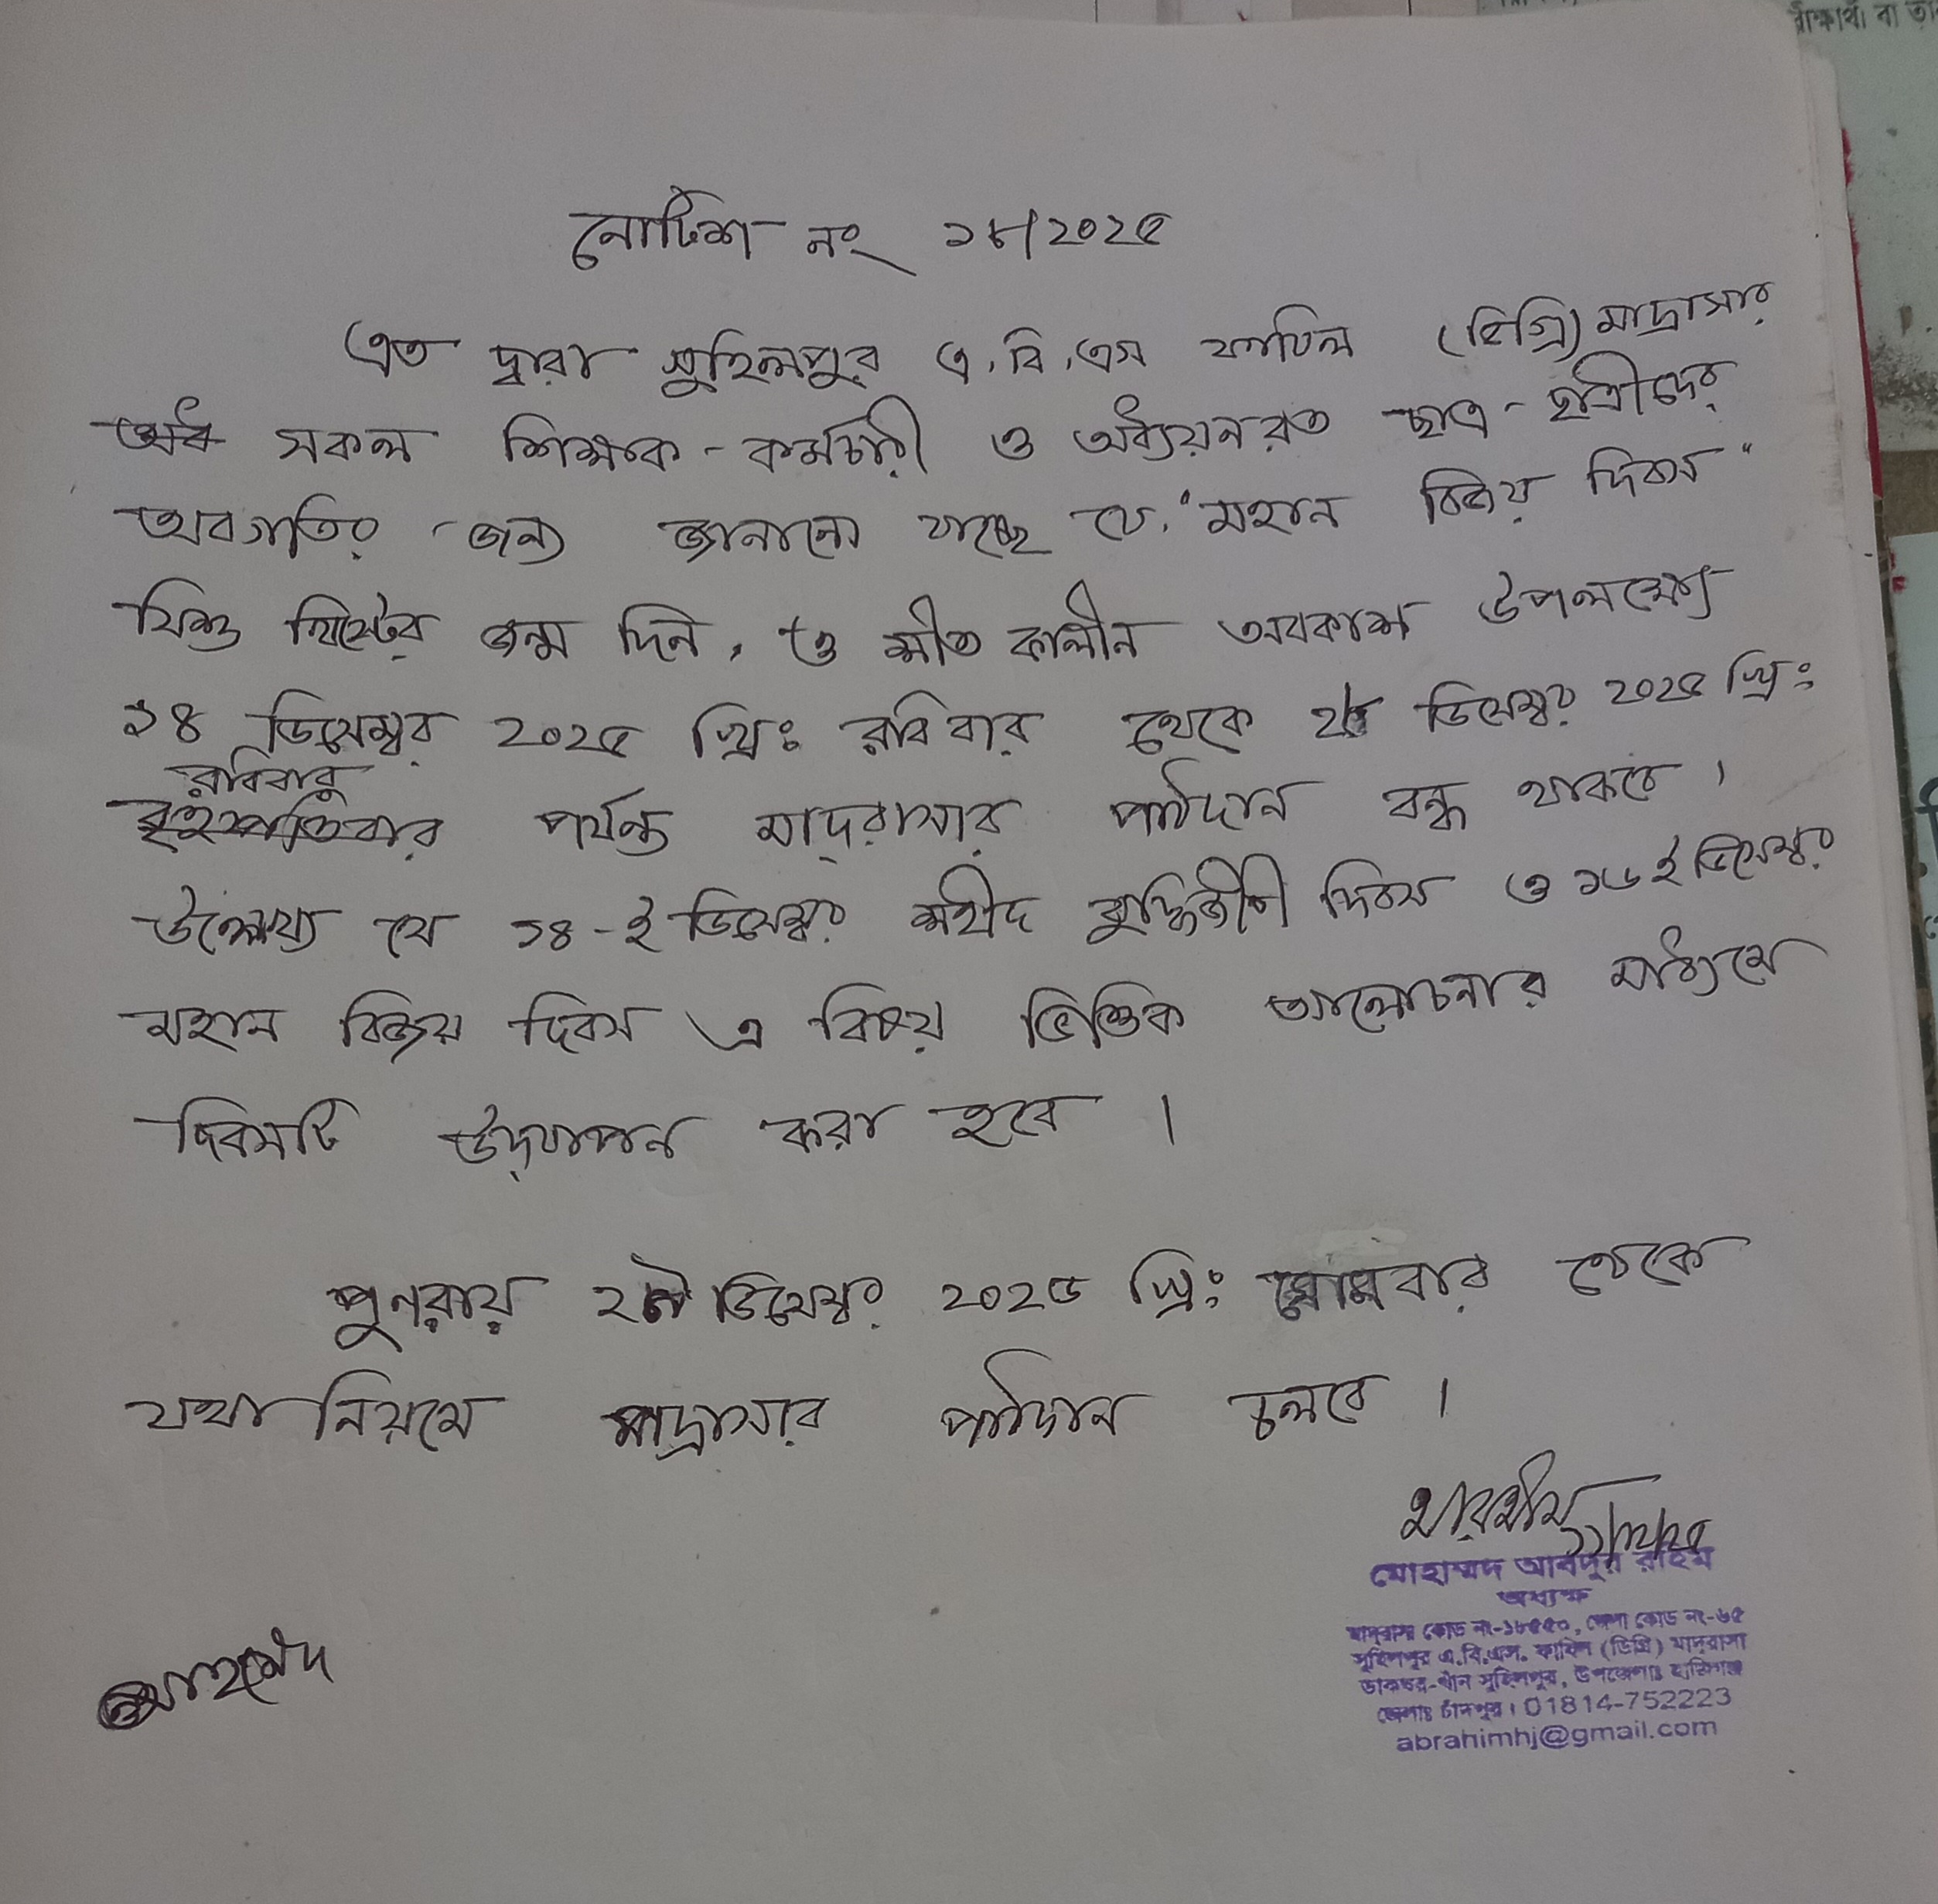 নোটিশ নং ১৮/২০২৫
এত দ্বারা সুহিলপুর এ.বি.এস ফাযিল (ডিগ্রি) মাদ্রাসার
সকল শিক্ষক-কর্মচারী ও অধ্যয়নরত ছাত্র-ছাত্রীদের
অবগতির জন্য জানানো যাচ্ছে যে, "মহান বিজয় দিবস"
যিশু খ্রিস্টের জন্ম দিন, ও শীত কালীন অবকাশ উপলক্ষ্যে
১৪ ডিসেম্বর ২০২৫ খ্রি: রবিবার থেকে ২৮ ডিসেম্বর ২০২৫ খ্রি:
রবিবার
বৃহস্পতিবার পর্যন্ত মাদ্‌রাসার পাঠদান বন্ধ থাকবে।
উল্লেখ্য যে ১৪-ই ডিসেম্বর শহীদ বুদ্ধিজীবী দিবস ও ১৬ই ডিসেম্বর
মহান বিজয় দিবস এ বিষয় ভিত্তিক আলোচনার মাধ্যমে
দিবসটি উদ্‌যাপন করা হবে।
পুনরায় ২৯ ডিসেম্বর ২০২৫ খ্রি: সোমবার থেকে
যথা নিয়মে মাদ্রাসার পাঠদান চলবে।
মোহাম্মদ আবদুর রহিম
অধ্যক্ষ
মাদ্‌রাসা কোড নং-১৮৫৫০, জেলা কোড নং-৬৫
সুহিলপুর এ.বি.এস. ফাযিল (ডিগ্রি) মাদ্‌রাসা
ডাকঘর-ধান সুহিলপুর, উপজেলাঃ হাজিগঞ্জ
জেলাঃ চাঁদপুর। 01814-752223
abrahimhj@gmail.com